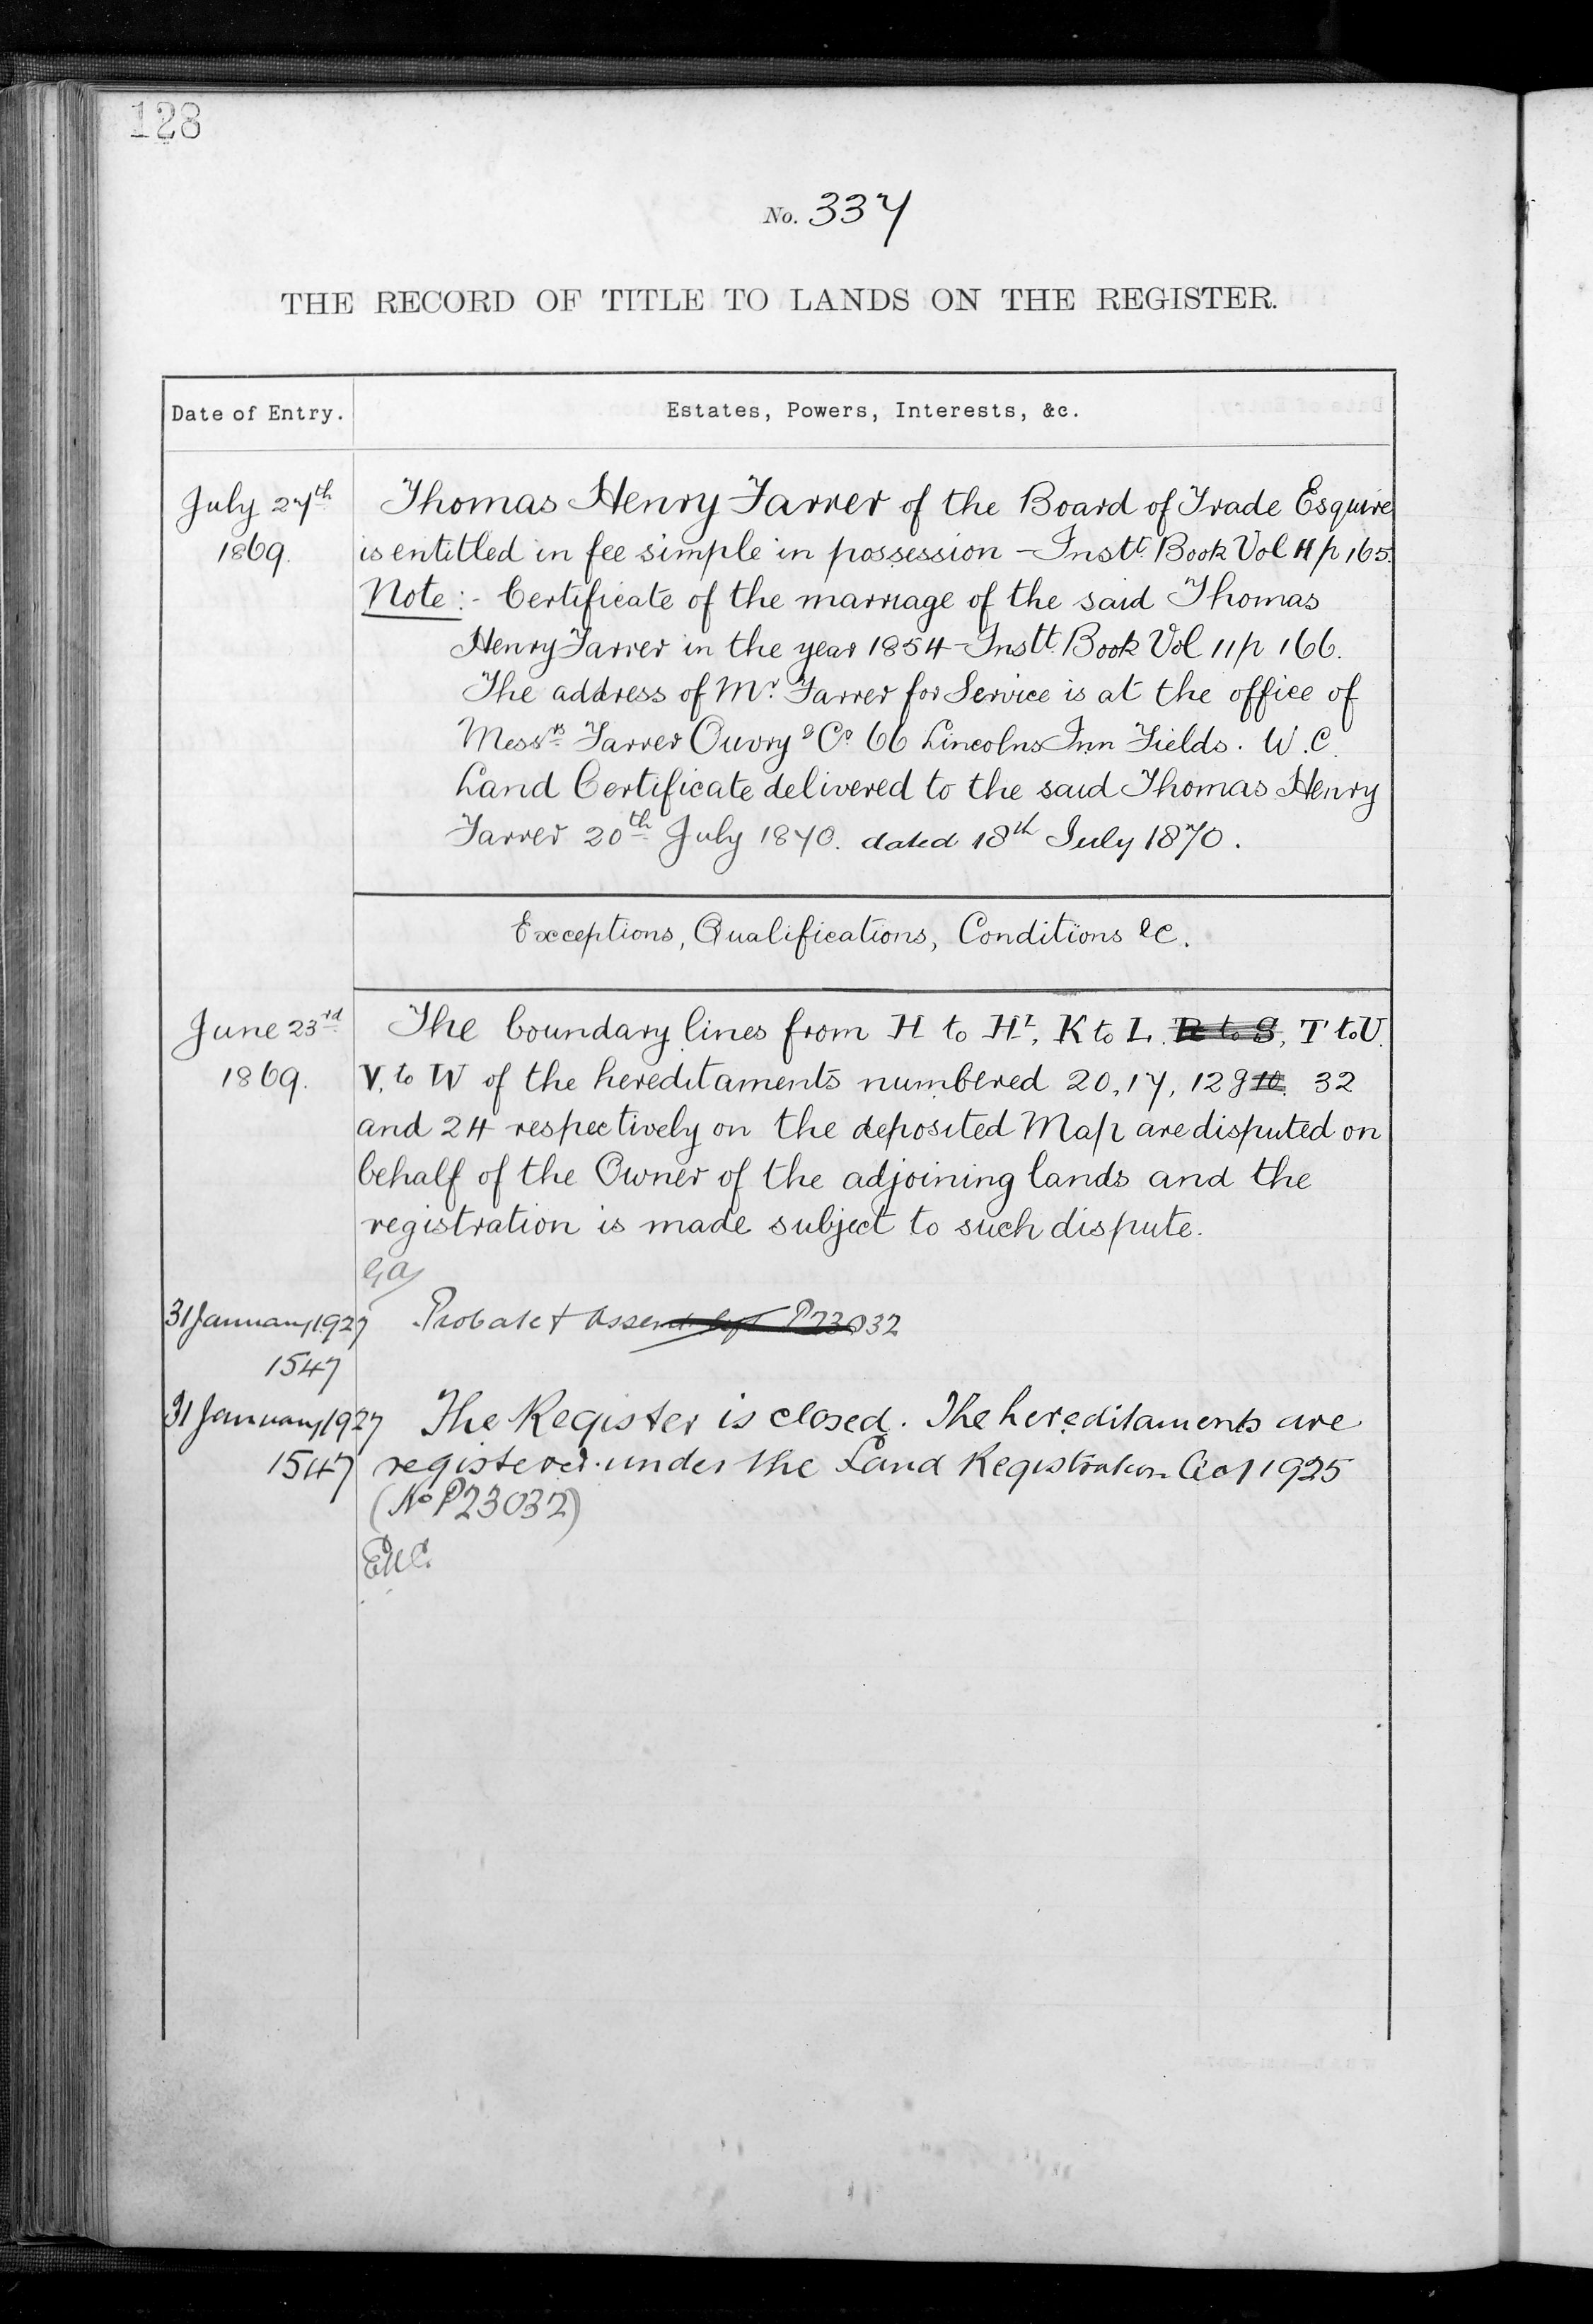 128
No. 337
THE RECORD OF TITLE TO LANDS ON THE REGISTER.
Date of Entry. Estates, Powers, Interests, &c.
July 27th Thomas Henry Farrer of the Board of Trade Esquire
1869. is entitled in fee simple in possession – Instt. Book Vol 11 p 165.
Note:- Certificate of the marriage of the said Thomas
Henry Farrer in the year 1854 – Instt. Book Vol 11 p 166.
The address of Mr. Farrer for Service is at the office of
Messrs. Farrer Ouvry & Co. 66 Lincolns Inn Fields. W.C.
Land Certificate delivered to the said Thomas Henry
Farrer 20th July 1870. dated 18th July 1870.
Exceptions, Qualifications, Conditions &c.
June 23rd The boundary lines from H to H1, K to L. R to S, T to U.
1869. V. to W of the hereditaments numbered 20, 17, 129 10. 32
and 24 respectively on the deposited Map are disputed on
behalf of the Owner of the adjoining lands and the
registration is made subject to such dispute.
31 January 1927 Probate & Assent left P23032
1547
31 January 1927 The Register is closed. The hereditaments are
1547 registered under the Land Registration Act 1925
(No P23032)